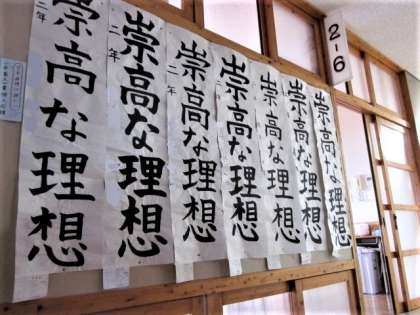 2-6
崇高な理想
二年
崇高な理想
二年
崇高な理想
二年
崇高な理想
二年
崇高な理想
崇高な理想
崇高な理想